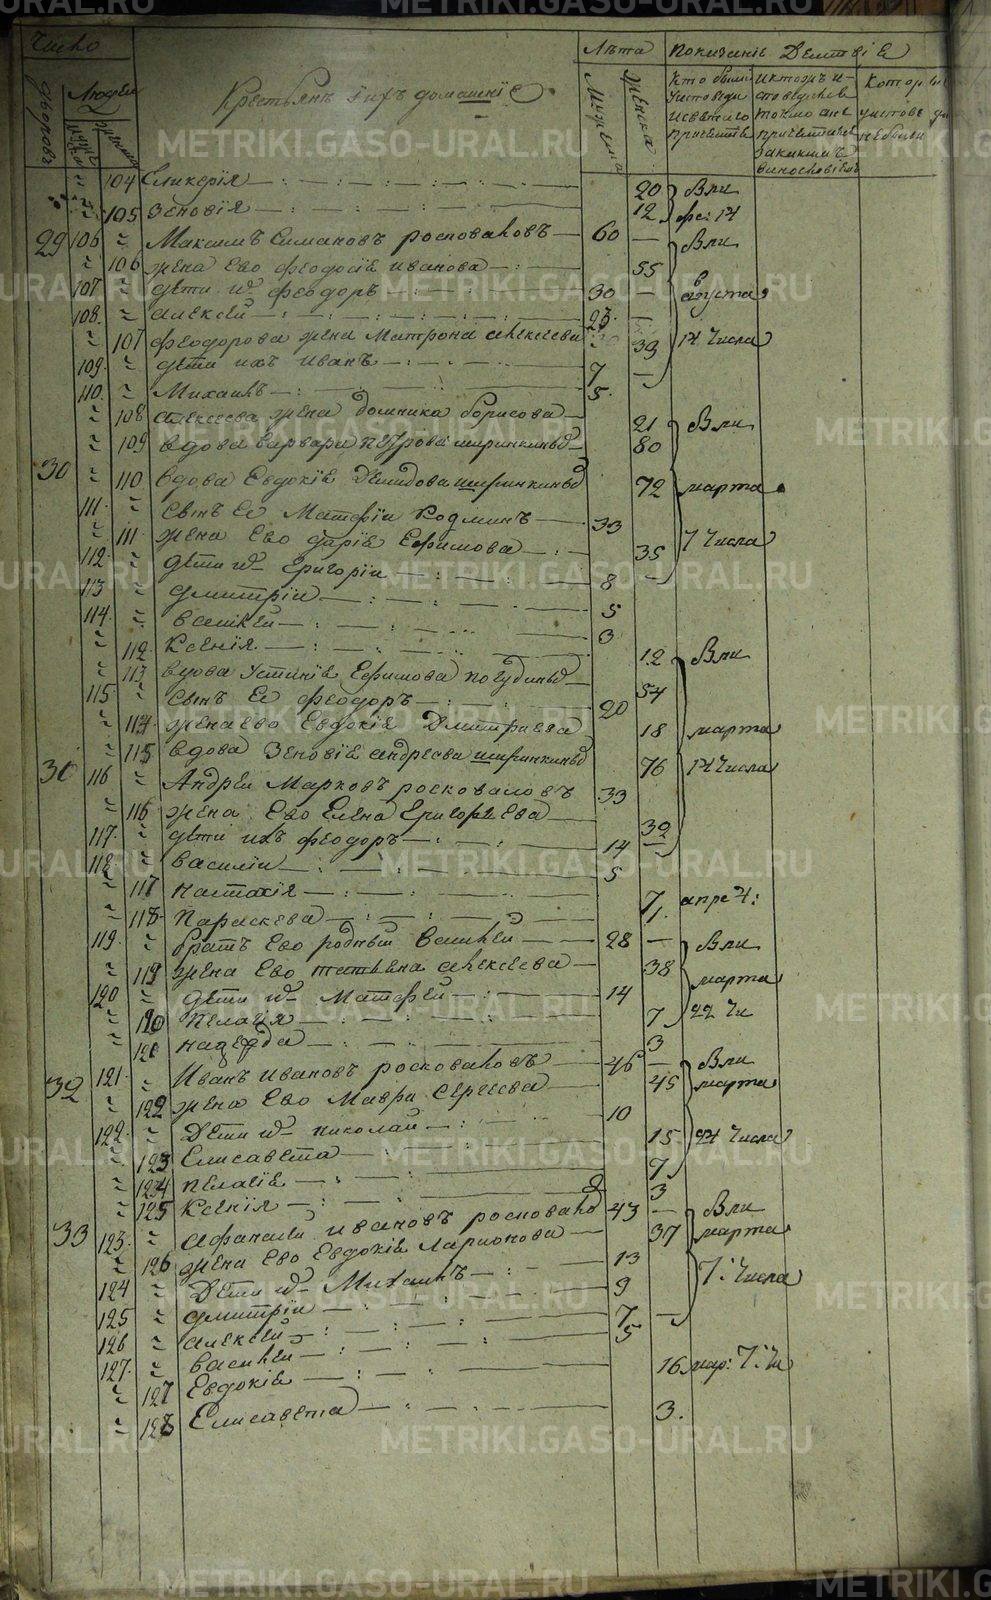 Число
Лѣта
Показаніе Действіе
дворовъ
Людей
мужска
женска
Крестьянъ і ихъ домашніе
Мужеска
женска
Кто были
у исповеди
и святаго
причастія
и кто жъ и-
споведался
токмо а не
причастился
за какимъ
винословіемъ
Которые
у исповеди
не были
104 Гликерія 20 Вли
105 Зеновія 12 фев: 14
29 106 Максимъ Симановъ росповаловъ 60 Вли
106 жена Ево Феодосіе иванова 55
107 дети их Феодоръ 30 августа
108 алексей 23
107 Феодорова жена Матрона алексеева 39 14 Числа
109 дети ихъ иванъ 7
110 Михаилъ 5
108 алексеева жена домника борисова 21 Вли
109 вдова варвара петрова ширинкиныхъ 80
30 110 вдова Евдокіе Демидова ширинкиныхъ 72 марта
111 Сынъ Ее Матфіи Кодминъ 33
111 жена Ево дарія Ефимова 35 7 Числа
112 дети их Григоріи 8
113 дмитріи 5
114 василей 3
112 Ксенія 12 Вли
113 вдова Устиніе Ефимова погудиныхъ 54
115 Сынъ Ее Феодоръ 20
114 жена ево Евдокіе Дмитриева 18 марта
115 вдова Зеновіе андреева ширинкиныхъ 76 14 Числа
30 116 Андреи Марковъ росковаловъ 33
116 жена Ево Елена Григорьева 32
117 дети ихъ Феодоръ 14
118 василіи 5
117 Настасія 7 апре 4:
118 Параскева 1.
119 братъ Ево родный Василей 28 Вли
119 жена Ево татьяна алексеева 38 марта
120 дети их Матфей 14
120 Пелагія 7 22 Чи
121 надежда 3
32 121 Иванъ Ивановъ росковаловъ 46 Вли
122 жена Ево Мавра Сергеева 45 марта
122 Дети их николай 10
123 Елисавета 15 24 Числа
124 пелагіе 7
125 Ксенія 3
33 123 афанасей ивановъ росковаловъ 43 Вли
126 жена Ево Евдокіе Ларионова 37 марта
124 Дети их Михаилъ 13
125 дмитріи 9 7: Числа
126 алексей 7
127 василей 5
127 Евдокіе 16 мар: 7: Чи
128 Елисавета 3.
METRIKI.GASO-URAL.RU